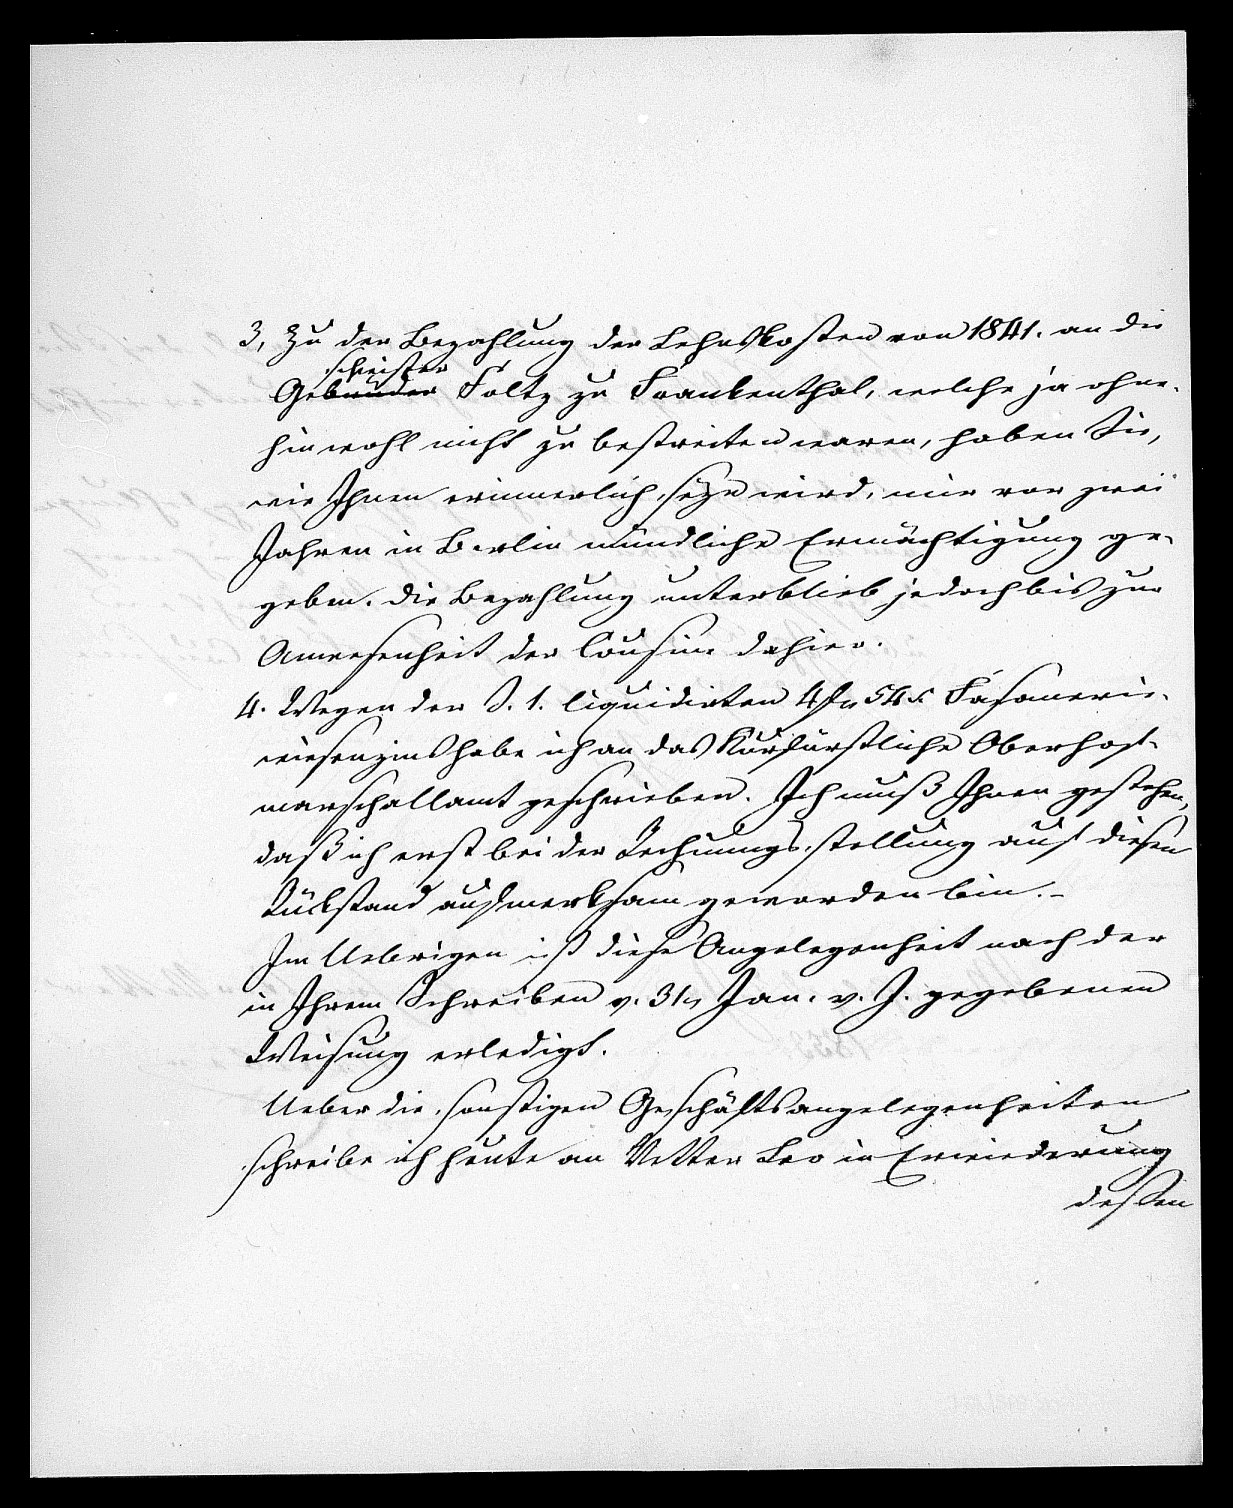 3, Zu der Bezahlung der Lehnskosten von 1841. an die
schwister
Gebrüder Foltz zu Frankenthal, welche ja ohne-
hin wohl nicht zu bestreiten waren, haben Sie,
wie Ihnen erinnerlich seyn wird, mir vor zwei
Jahren in Berlin mündliche Ermächtigung ge-
geben. Die Bezahlung unterblieb jedoch bis zur
Anwesenheit der Cousine dahier.
4. Wegen der S. 1. liquidirten 4 fl 54 x Fasanerie-
wiesenzins habe ich an das Kurfürstliche Oberhof-
marschallamt geschrieben. Ich muß Ihnen gestehen,
daß ich erst bei der Rechnungsstellung auf diesen
Rückstand aufmerksam geworden bin. -
Im Uebrigen ist diese Angelegenheit nach der
in Ihrem Schreiben v. 31n Jan. v. J. gegebenen
Weisung erledigt.
Ueber die sonstigen Geschäftsangelegenheiten
schreibe ich heute an Vetter Leo in Erwiederung
dessen